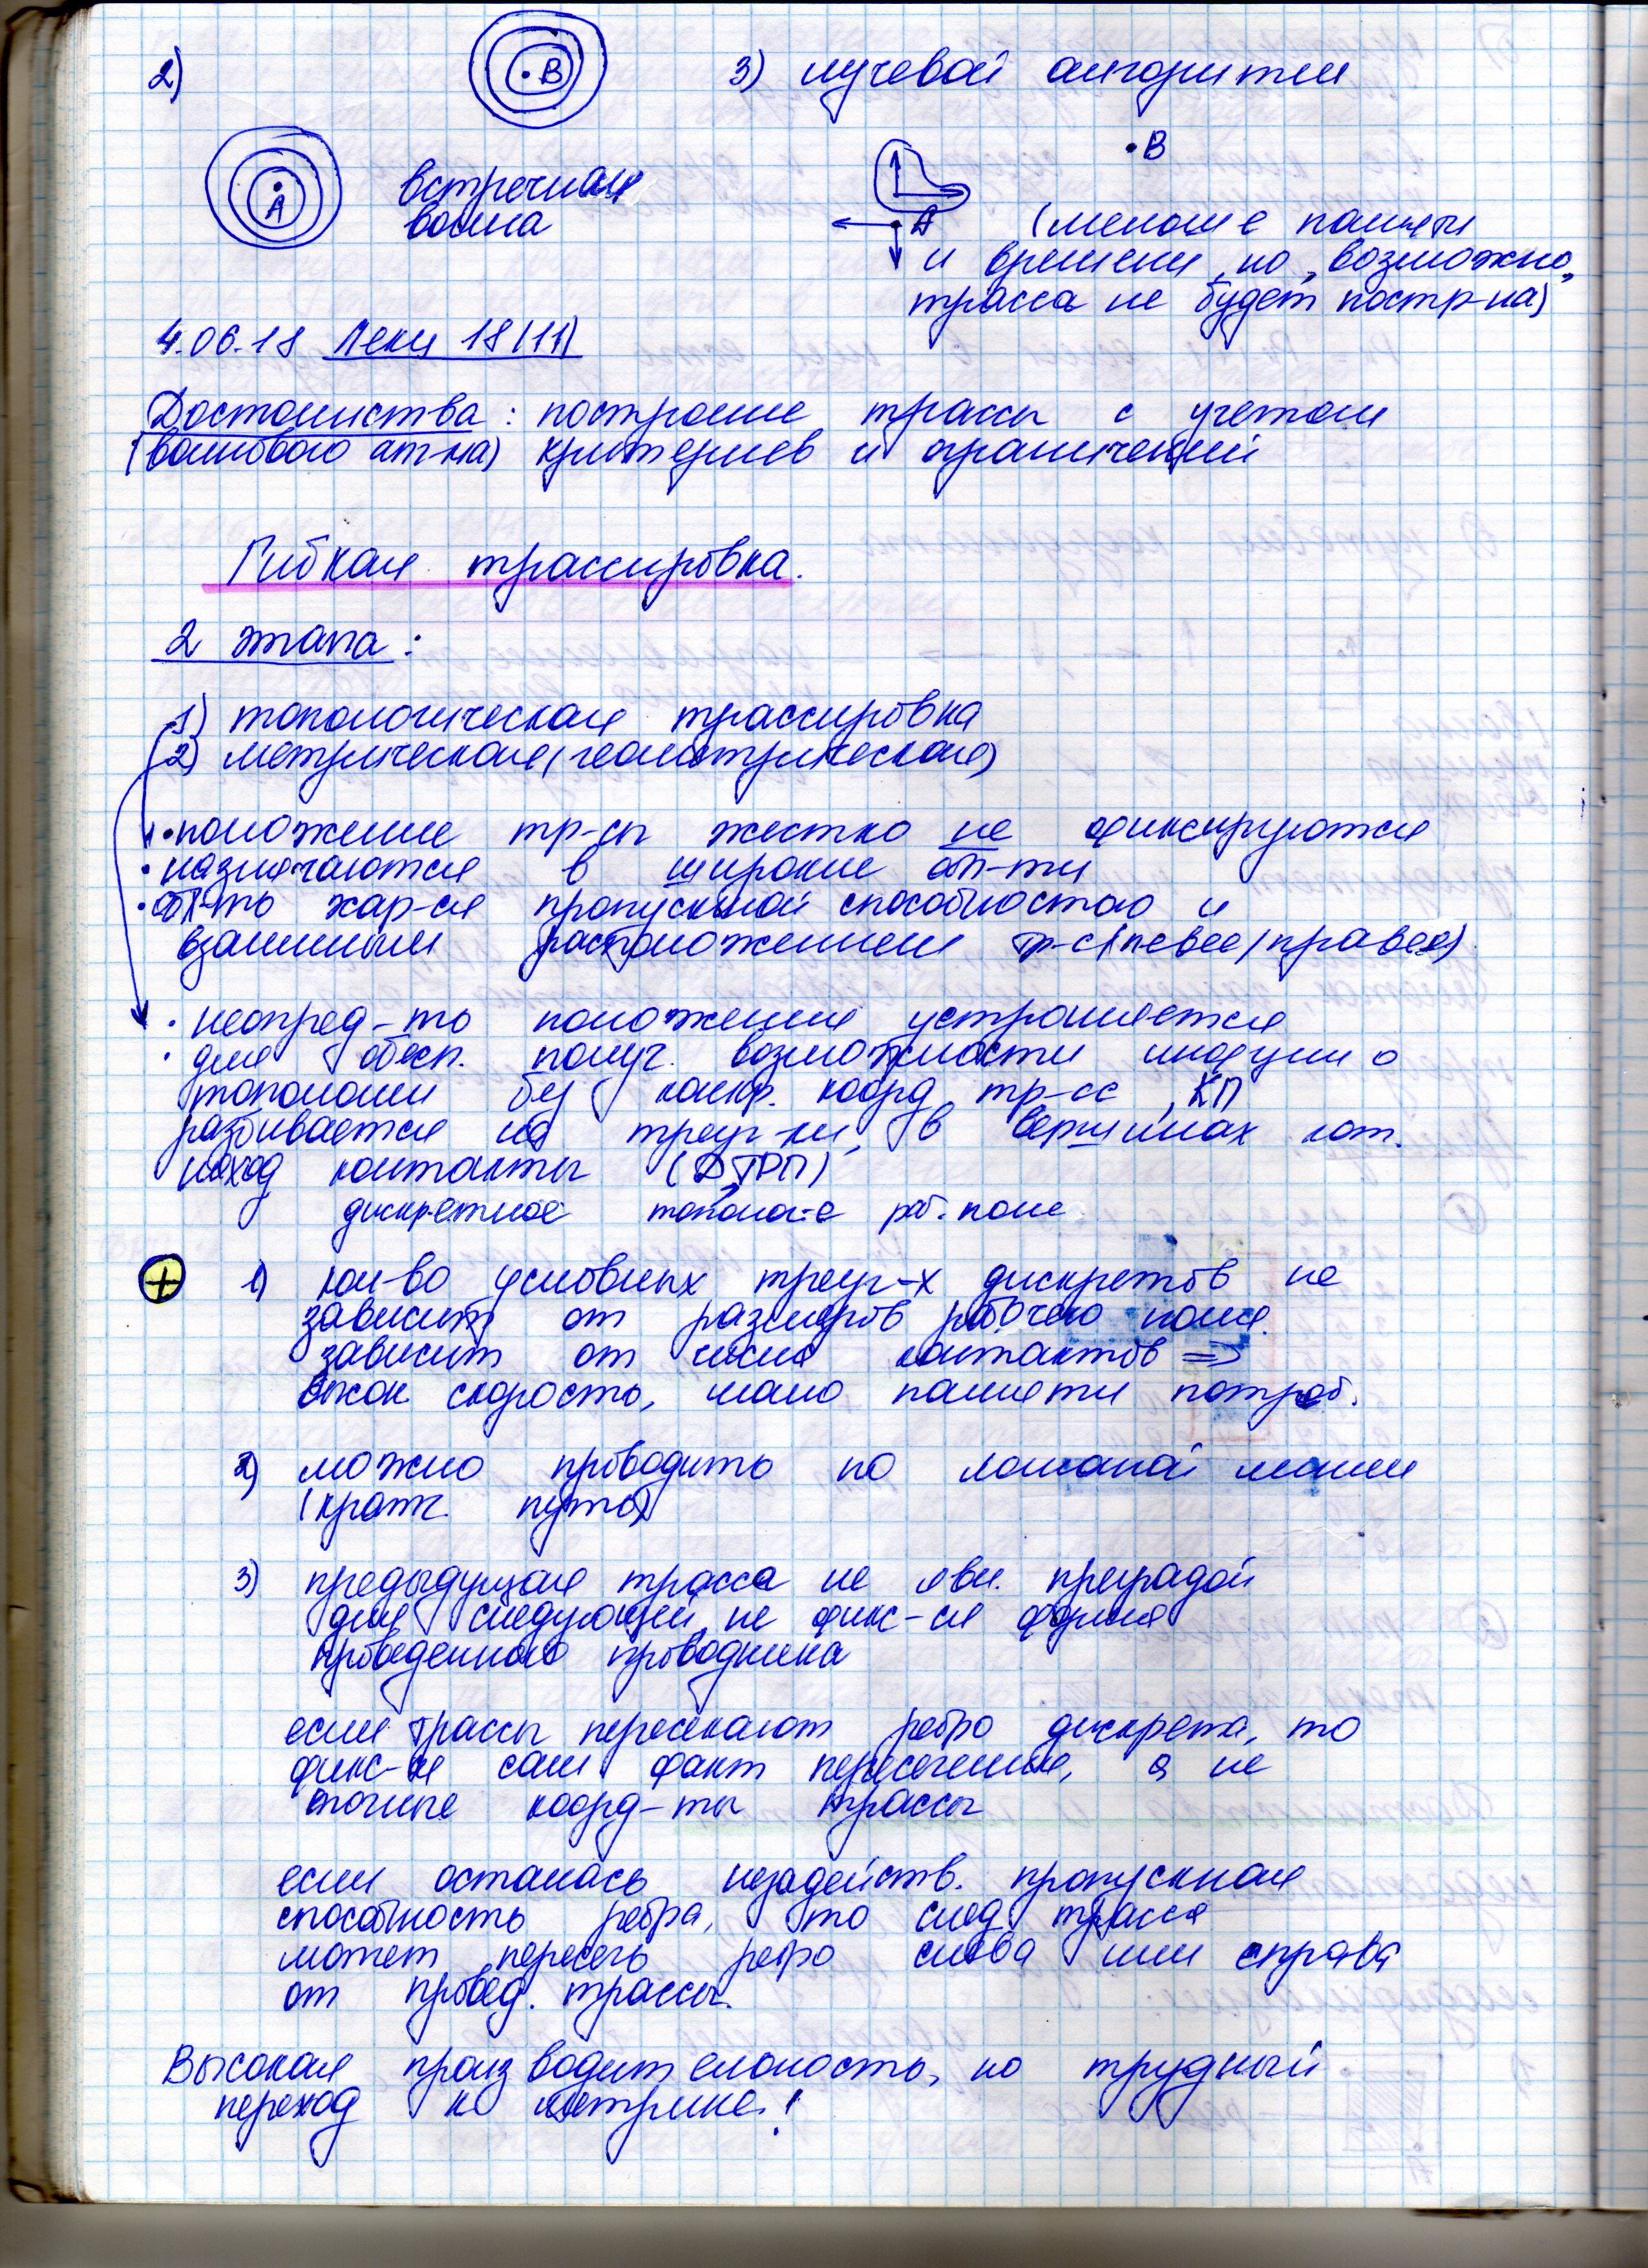 2)
В
3) лучевой алгоритм
А
встречная
волна
В
А (меньше памяти
и времени, но, возможно,
трасса не будет постр-на)
4.06.18 Лекц 18(11)
Достоинства: построение трассы с учетом
(волнового алг-ма) критериев и ограничений
Гибкая трассировка.
2 этапа:
1) топологическая трассировка
2) метрическая (геометрическая)
• положение тр-сы жестко не фиксируются
• назначаются в широкие обл-ти
• обл-ть хар-ся пропускной способностью и
взаимным расположением тр-с (левее/правее)
• неопред-ть положения устраняется
• для обесп. получ. возможности инфции о
топологии без конкр. коорд тр-сс, КП
разбивается на треуг-ки, в вершинах кот.
наход контакты (ДТРП)
дискретное тополог-е раб. поле
+ 1) кол-во условных треуг-х дискретов не
зависит от размеров рабочего поля.
зависит от числа контактов =>
высок скорость, мало памяти потреб.
2) можно проводить по ломаной линии
(кратч. путь)
3) предыдущая трасса не явл. преградой
для следующей, не фикс-ся форма
проведенного проводника
если трассы пересекают ребро дискрета, то
фикс-ся сам факт пересечения, а не
точные коорд-ты трассы
если осталась незадейств. пропускная
способность ребра, то след трасса
может пересечь ребро слева или справа
от провед. трассы.
Высокая производительность, но трудный
переход к метрике!